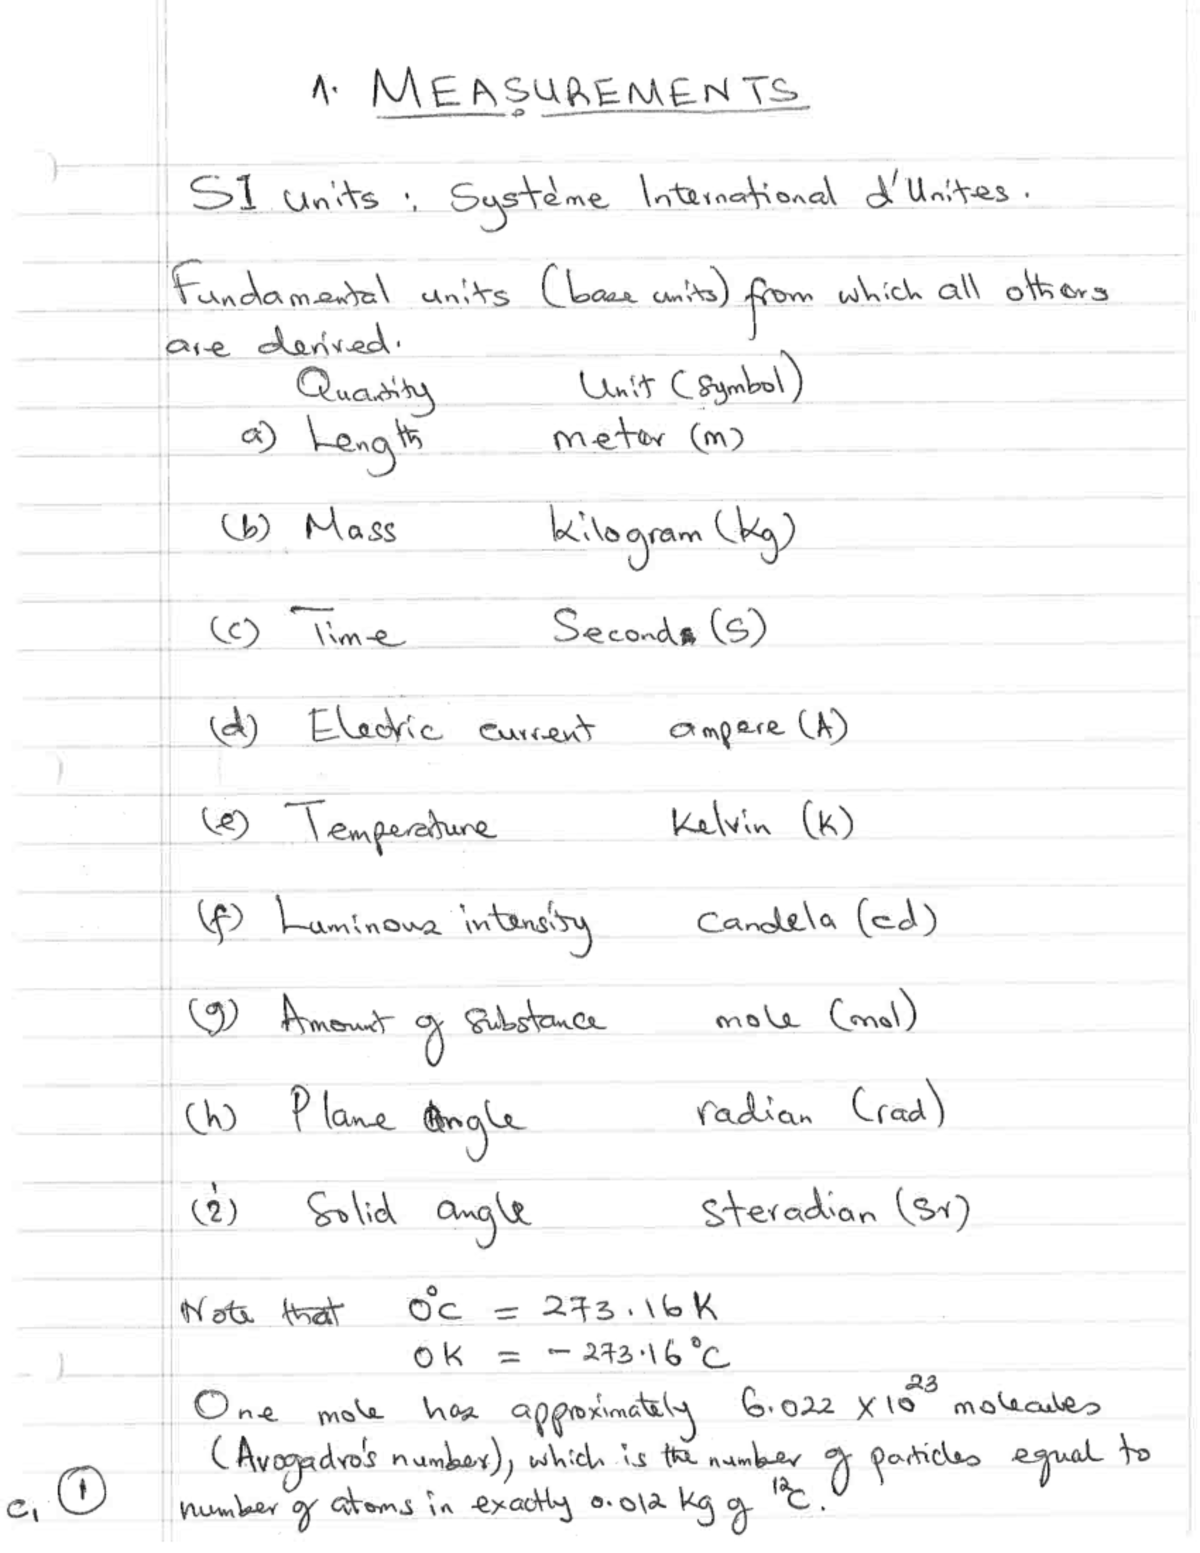 1. MEASUREMENTS
SI units : Système International d'Unites.
Fundamental units (base units) from which all others
are derived.
Quantity Unit (Symbol)
a) Length meter (m)
(b) Mass kilogram (kg)
(c) Time Seconds (s)
(d) Electric current ampere (A)
(e) Temperature Kelvin (K)
(f) Luminous intensity Candela (cd)
(g) Amount of substance mole (mol)
(h) Plane angle radian (rad)
(i) Solid angle steradian (sr)
Note that 0°C = 273.16 K
0 K = - 273.16 °C
One mole has approximately 6.022 x 10²³ molecules
(Avogadro's number), which is the number of particles equal to
number of atoms in exactly 0.012 kg of ¹²C.
C, 1